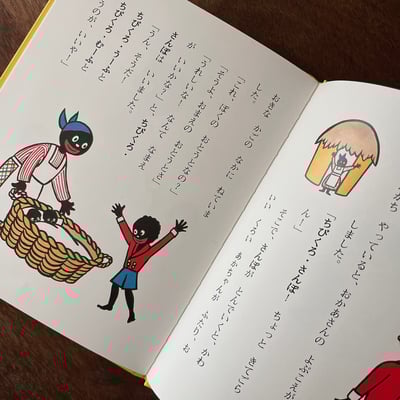 から　やっていると、おかあさんの　よぶこえが
しました。
「ちびくろ・さんぼ！　ちょっと　きてごら
ん！」
そこで、さんぼが　とんでいくと、かわ
いい　くろい　あかちゃんが　ふたり、お
おきな　かごの　なかに　ねていま
した。
「これ、ぼくの　おとうとなの？」
「そうよ、おまえの　おとうとさ」
「うれしいな！　なんて　なまえ
が　いいかな？」と、
さんぼは　いいました。
「うん、そうだ！　ちびくろ・
ちびくろ・うーふと
ちびくろ・むーふと
うのが、いいや！」